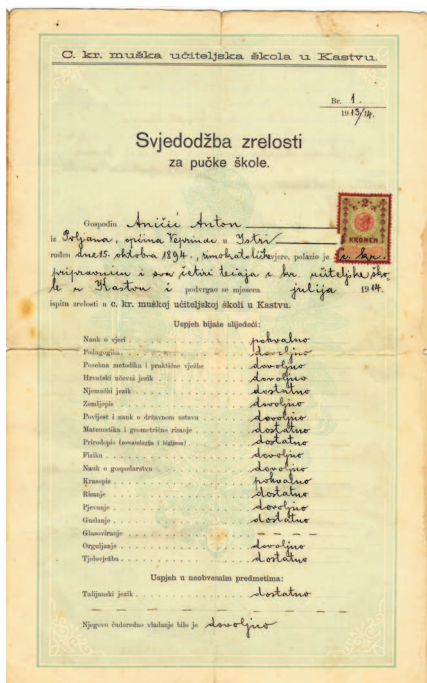 C. kr. muška učiteljska škola u Kastvu.
Br. 1.
1913/14.
Svjedodžba zrelosti
za pučke škole.
KRONEN
Gospodin Aničić Anton
iz Poljana, općina Veprinac u Istri
rođen dne 15. oktobra 1894., rimokatoličke vjere, polazio je c. kr.
pripravnicu i sva četiri tečaja c. kr. učiteljske ško-
le u Kastvu i podvrgao se mjeseca julija 1914.
ispitu zrelosti u c. kr. muškoj učiteljskoj školi u Kastvu.
Uspjeh bijaše slijedeći:
Nauk o vjeri pohvalno
Pedagogika dovoljno
Posebna metodika i praktične vježbe dovoljno
Hrvatski učevni jezik dovoljno
Njemački jezik dostatno
Zemljopis dovoljno
Povijest i nauk o državnom ustavu dovoljno
Matematika i geometrično risanje dostatno
Prirodopis (somatologija i higijena) dovoljno
Fizika dovoljno
Nauk o gospodarstvu dovoljno
Krasopis pohvalno
Risanje dostatno
Pjevanje dovoljno
Guđanje dostatno
Glasoviranje
Orguljanje dovoljno
Tjelovježba dostatno
Uspjeh u neobveznim predmetima:
Talijanski jezik dostatno
Njegovo ćudoredno vladanje bilo je dovoljno